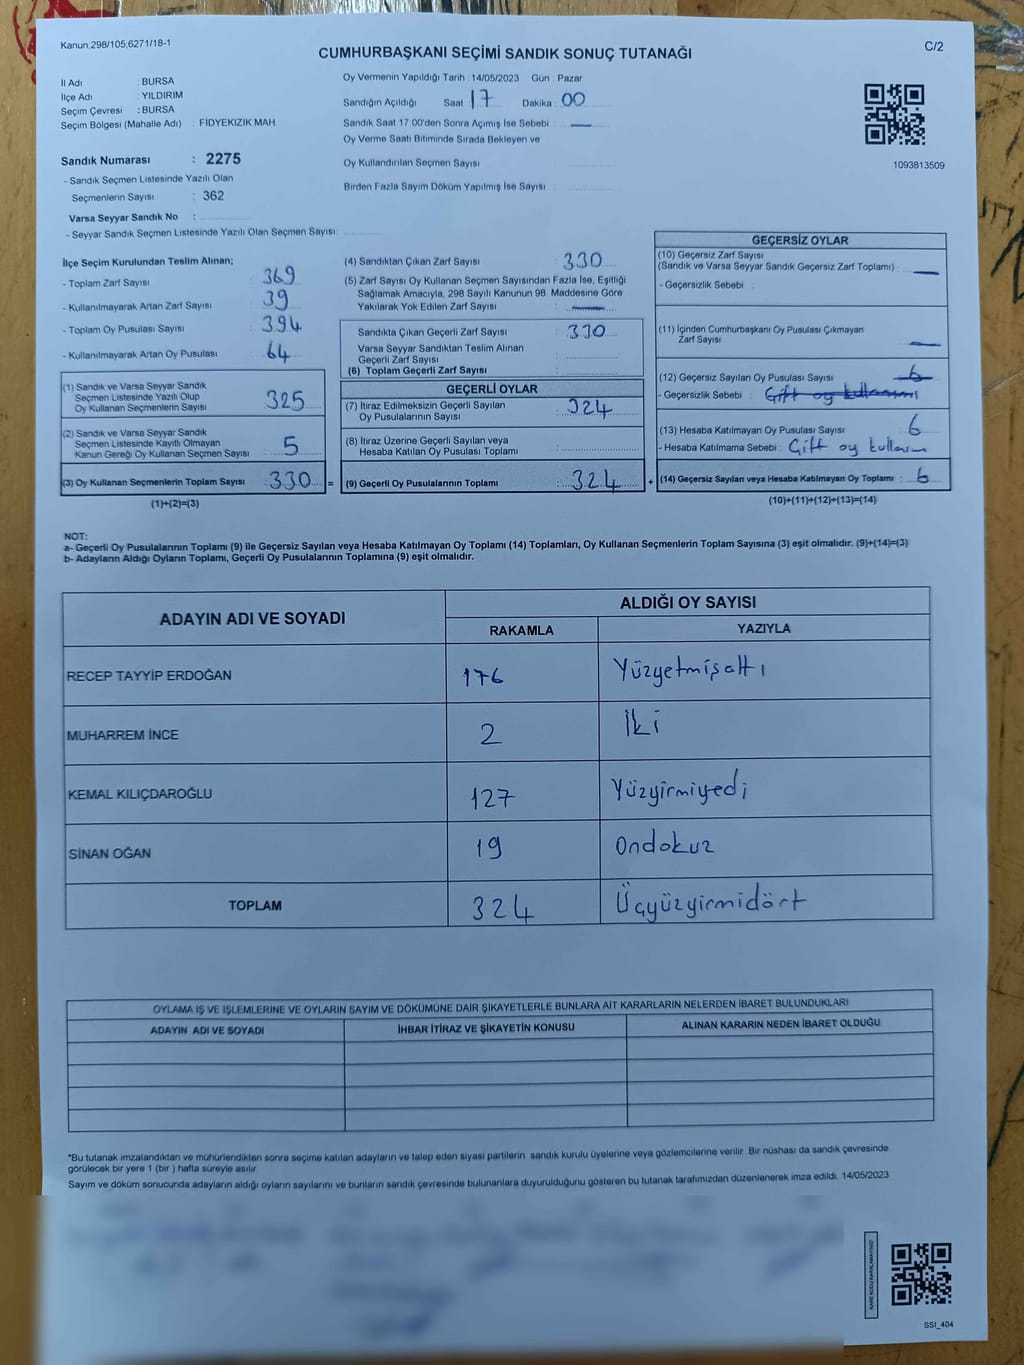 Kanun,298/105,6271/18-1
C/2
CUMHURBAŞKANI SEÇİMİ SANDIK SONUÇ TUTANAĞI
İl Adı : BURSA
İlçe Adı : YILDIRIM
Seçim Çevresi : BURSA
Seçim Bölgesi (Mahalle Adı) : FİDYEKIZIK MAH
Sandık Numarası : 2275
- Sandık Seçmen Listesinde Yazılı Olan
Seçmenlerin Sayısı : 362
Varsa Seyyar Sandık No :
- Seyyar Sandık Seçmen Listesinde Yazılı Olan Seçmen Sayısı:
Oy Vermenin Yapıldığı Tarih : 14/05/2023 Gün : Pazar
Sandığın Açıldığı Saat 17 Dakika : 00
Sandık Saat 17:00'den Sonra Açımış İse Sebebi : —
Oy Verme Saati Bitiminde Sırada Bekleyen ve
Oy Kullandırılan Seçmen Sayısı :
Birden Fazla Sayım Döküm Yapılmış İse Sayısı :
1093813509
İlçe Seçim Kurulundan Teslim Alınan;
- Toplam Zarf Sayısı : 369
- Kullanılmayarak Artan Zarf Sayısı : 39
- Toplam Oy Pusulası Sayısı : 394
- Kullanılmayarak Artan Oy Pusulası : 64
(1) Sandık ve Varsa Seyyar Sandık
Seçmen Listesinde Yazılı Olup
Oy Kullanan Seçmenlerin Sayısı : 325
(2) Sandık ve Varsa Seyyar Sandık
Seçmen Listesinde Kayıtlı Olmayan
Kanun Gereği Oy Kullanan Seçmen Sayısı : 5
(3) Oy Kullanan Seçmenlerin Toplam Sayısı : 330 =
(1)+(2)=(3)
(4) Sandıktan Çıkan Zarf Sayısı : 330
(5) Zarf Sayısı Oy Kullanan Seçmen Sayısından Fazla İse, Eşitliği
Sağlamak Amacıyla, 298 Sayılı Kanunun 98. Maddesine Göre
Yakılarak Yok Edilen Zarf Sayısı : —
Sandıkta Çıkan Geçerli Zarf Sayısı : 330
Varsa Seyyar Sandıktan Teslim Alınan
Geçerli Zarf Sayısı :
(6) Toplam Geçerli Zarf Sayısı :
GEÇERLİ OYLAR
(7) İtiraz Edilmeksizin Geçerli Sayılan
Oy Pusulalarının Sayısı : 324
(8) İtiraz Üzerine Geçerli Sayılan veya
Hesaba Katılan Oy Pusulası Toplamı :
(9) Geçerli Oy Pusulalarının Toplamı : 324 +
GEÇERSİZ OYLAR
(10) Geçersiz Zarf Sayısı
(Sandık ve Varsa Seyyar Sandık Geçersiz Zarf Toplamı) : —
- Geçersizlik Sebebi :
(11) İçinden Cumhurbaşkanı Oy Pusulası Çıkmayan
Zarf Sayısı : —
(12) Geçersiz Sayılan Oy Pusulası Sayısı : 6
- Geçersizlik Sebebi : Çift oy kullanımı
(13) Hesaba Katılmayan Oy Pusulası Sayısı : 6
- Hesaba Katılmama Sebebi : Çift oy kullanım
(14) Geçersiz Sayılan veya Hesaba Katılmayan Oy Toplamı : 6
(10)+(11)+(12)+(13)=(14)
NOT:
a- Geçerli Oy Pusulalarının Toplamı (9) ile Geçersiz Sayılan veya Hesaba Katılmayan Oy Toplamı (14) Toplamları, Oy Kullanan Seçmenlerin Toplam Sayısına (3) eşit olmalıdır. (9)+(14)=(3)
b- Adayların Aldığı Oyların Toplamı, Geçerli Oy Pusulalarının Toplamına (9) eşit olmalıdır.
ADAYIN ADI VE SOYADI ALDIĞI OY SAYISI
RAKAMLA YAZIYLA
RECEP TAYYİP ERDOĞAN 176 Yüzyetmişaltı
MUHARREM İNCE 2 İki
KEMAL KILIÇDAROĞLU 127 Yüzyirmiyedi
SİNAN OĞAN 19 Ondokuz
TOPLAM 324 Üçyüzyirmidört
OYLAMA İŞ VE İŞLEMLERİNE VE OYLARIN SAYIM VE DÖKÜMÜNE DAİR ŞİKAYETLERLE BUNLARA AİT KARARLARIN NELERDEN İBARET BULUNDUKLARI
ADAYIN ADI VE SOYADI İHBAR İTİRAZ VE ŞİKAYETİN KONUSU ALINAN KARARIN NEDEN İBARET OLDUĞU
*Bu tutanak imzalandıktan ve mühürlendikten sonra seçime katılan adayların ve talep eden siyasi partilerin sandık kurulu üyelerine veya gözlemcilerine verilir. Bir nüshası da sandık çevresinde
görülecek bir yere 1 (bir ) hafta süreyle asılır.
Sayım ve döküm sonucunda adayların aldığı oyların sayılarını ve bunların sandık çevresinde bulunanlara duyurulduğunu gösteren bu tutanak tarafımızdan düzenlenerek imza edildi. 14/05/2023
SSI_404